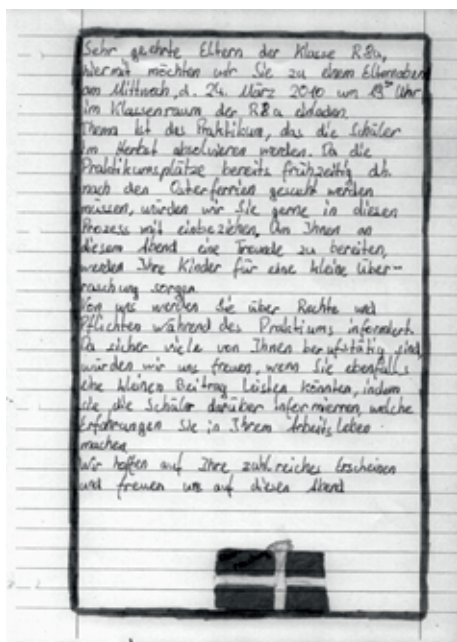 Sehr geehrte Eltern der Klasse R8a,
hiermit möchten wir Sie zu einem Elternabend
am Mittwoch, d. 24. März 2010 um Uhr
im Klassenraum der R8a einladen.
Thema ist das Praktikum, das die Schüler
im Herbst absolvieren werden. Da die
Praktikumsplätze bereits frühzeitig d.h.
nach den Osterferrien gesucht werden
müssen, würden wir Sie gerne in diesen
Prozess mit einbeziehen. Um Ihnen an
diesem Abend eine Freunde zu bereiten,
werden Ihre Kinder für eine kleine Über-
raschung sorgen.
Von uns werden Sie über Rechte und
Pflichten während des Praktiums informiert.
Da sicher viele von Ihnen berufstätig sind,
würden wir uns freuen, wenn Sie ebenfalls
kleinen Beitrag leisten könnten, indem
sie die Schüler darüber informieren, welche
Erfahrungen Sie in Ihrem Arbeitsleben
machen.
Wir hoffen auf Ihre zahlreiches Erscheinen
und freuen uns auf diesen Abend